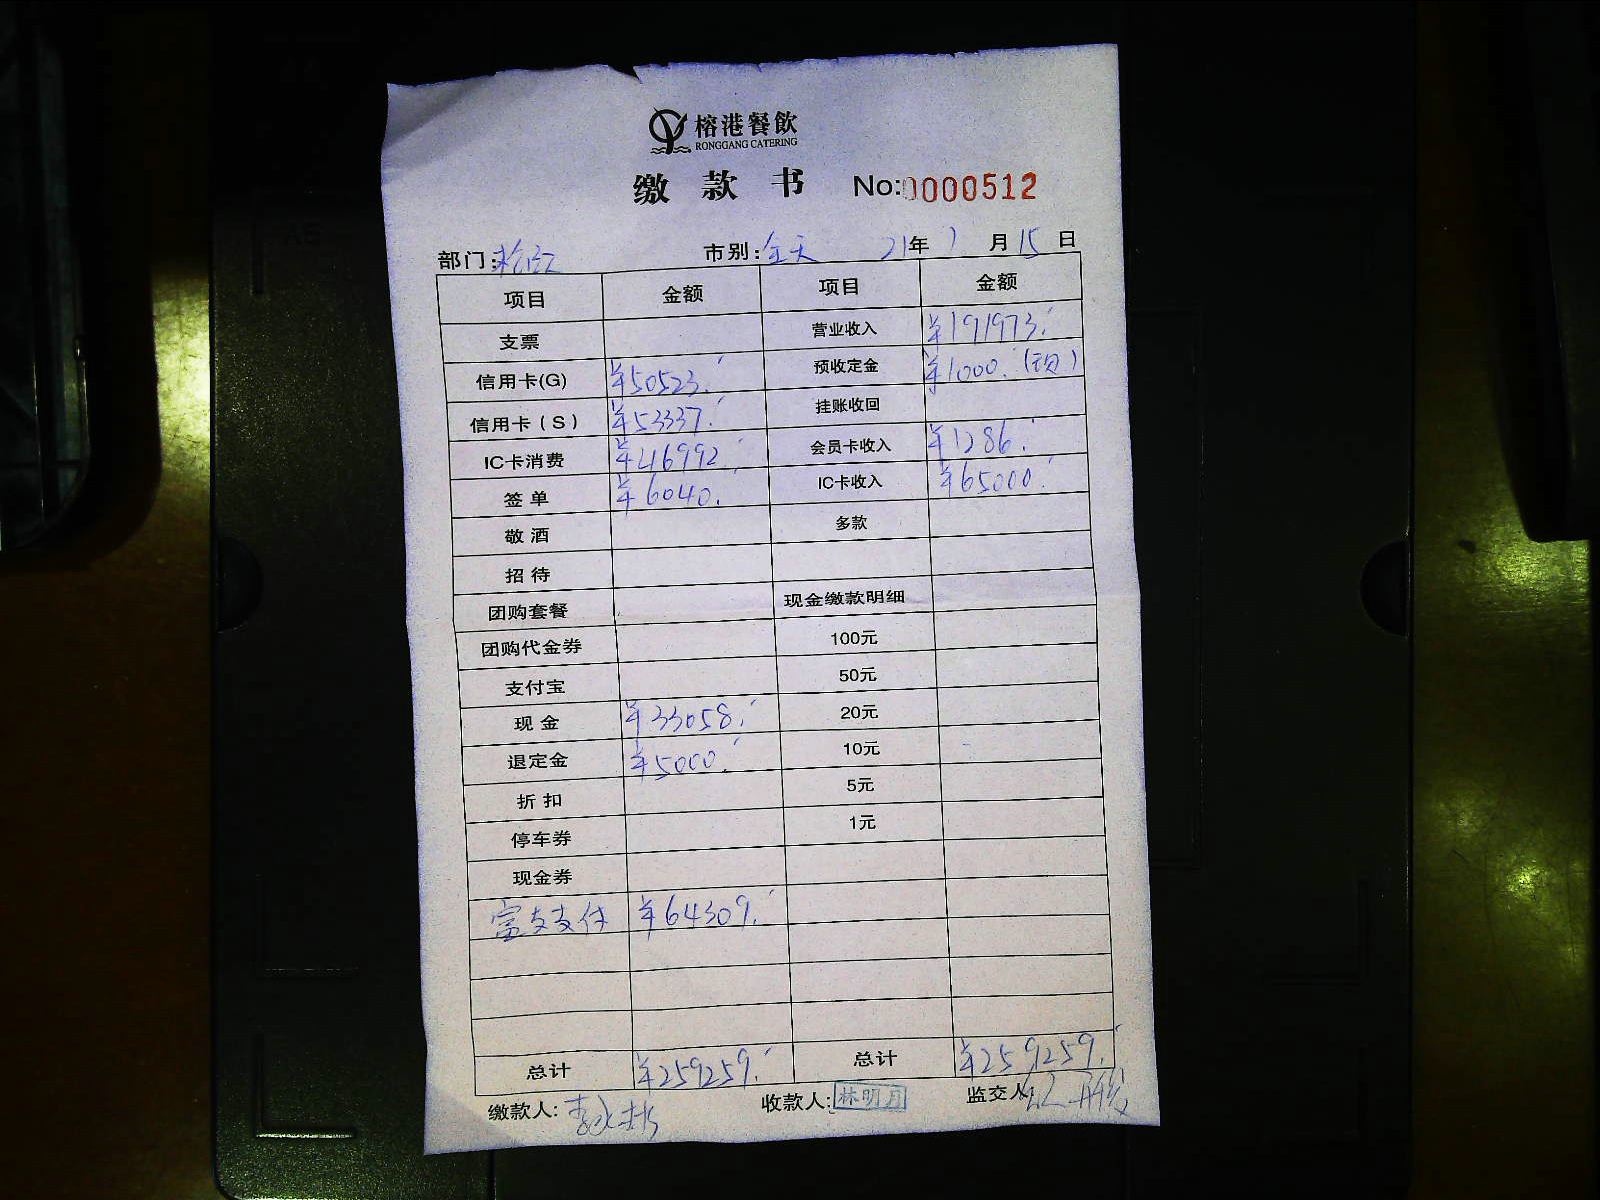 榕港餐飲
RONGGANG CATERING
缴款书 No:0000512
部门: 市别:全天 21年 7月15日
项目 金额 项目 金额
支票 营业收入 ¥191973.
信用卡(G) ¥50523. 预收定金 ¥1000.
信用卡(S) ¥53337. 挂账收回
IC卡消费 ¥46992. 会员卡收入 ¥1286.
签单 ¥6040. IC卡收入 ¥65000.
敬酒 多款
招待
团购套餐 现金缴款明细
团购代金券 100元
支付宝 50元
现金 ¥33058. 20元
退定金 ¥5000. 10元
折扣 5元
停车券 1元
现金券
富友支付 ¥64309.
总计 ¥259259. 总计 ¥259259.
缴款人: 收款人:林明月 监交人: